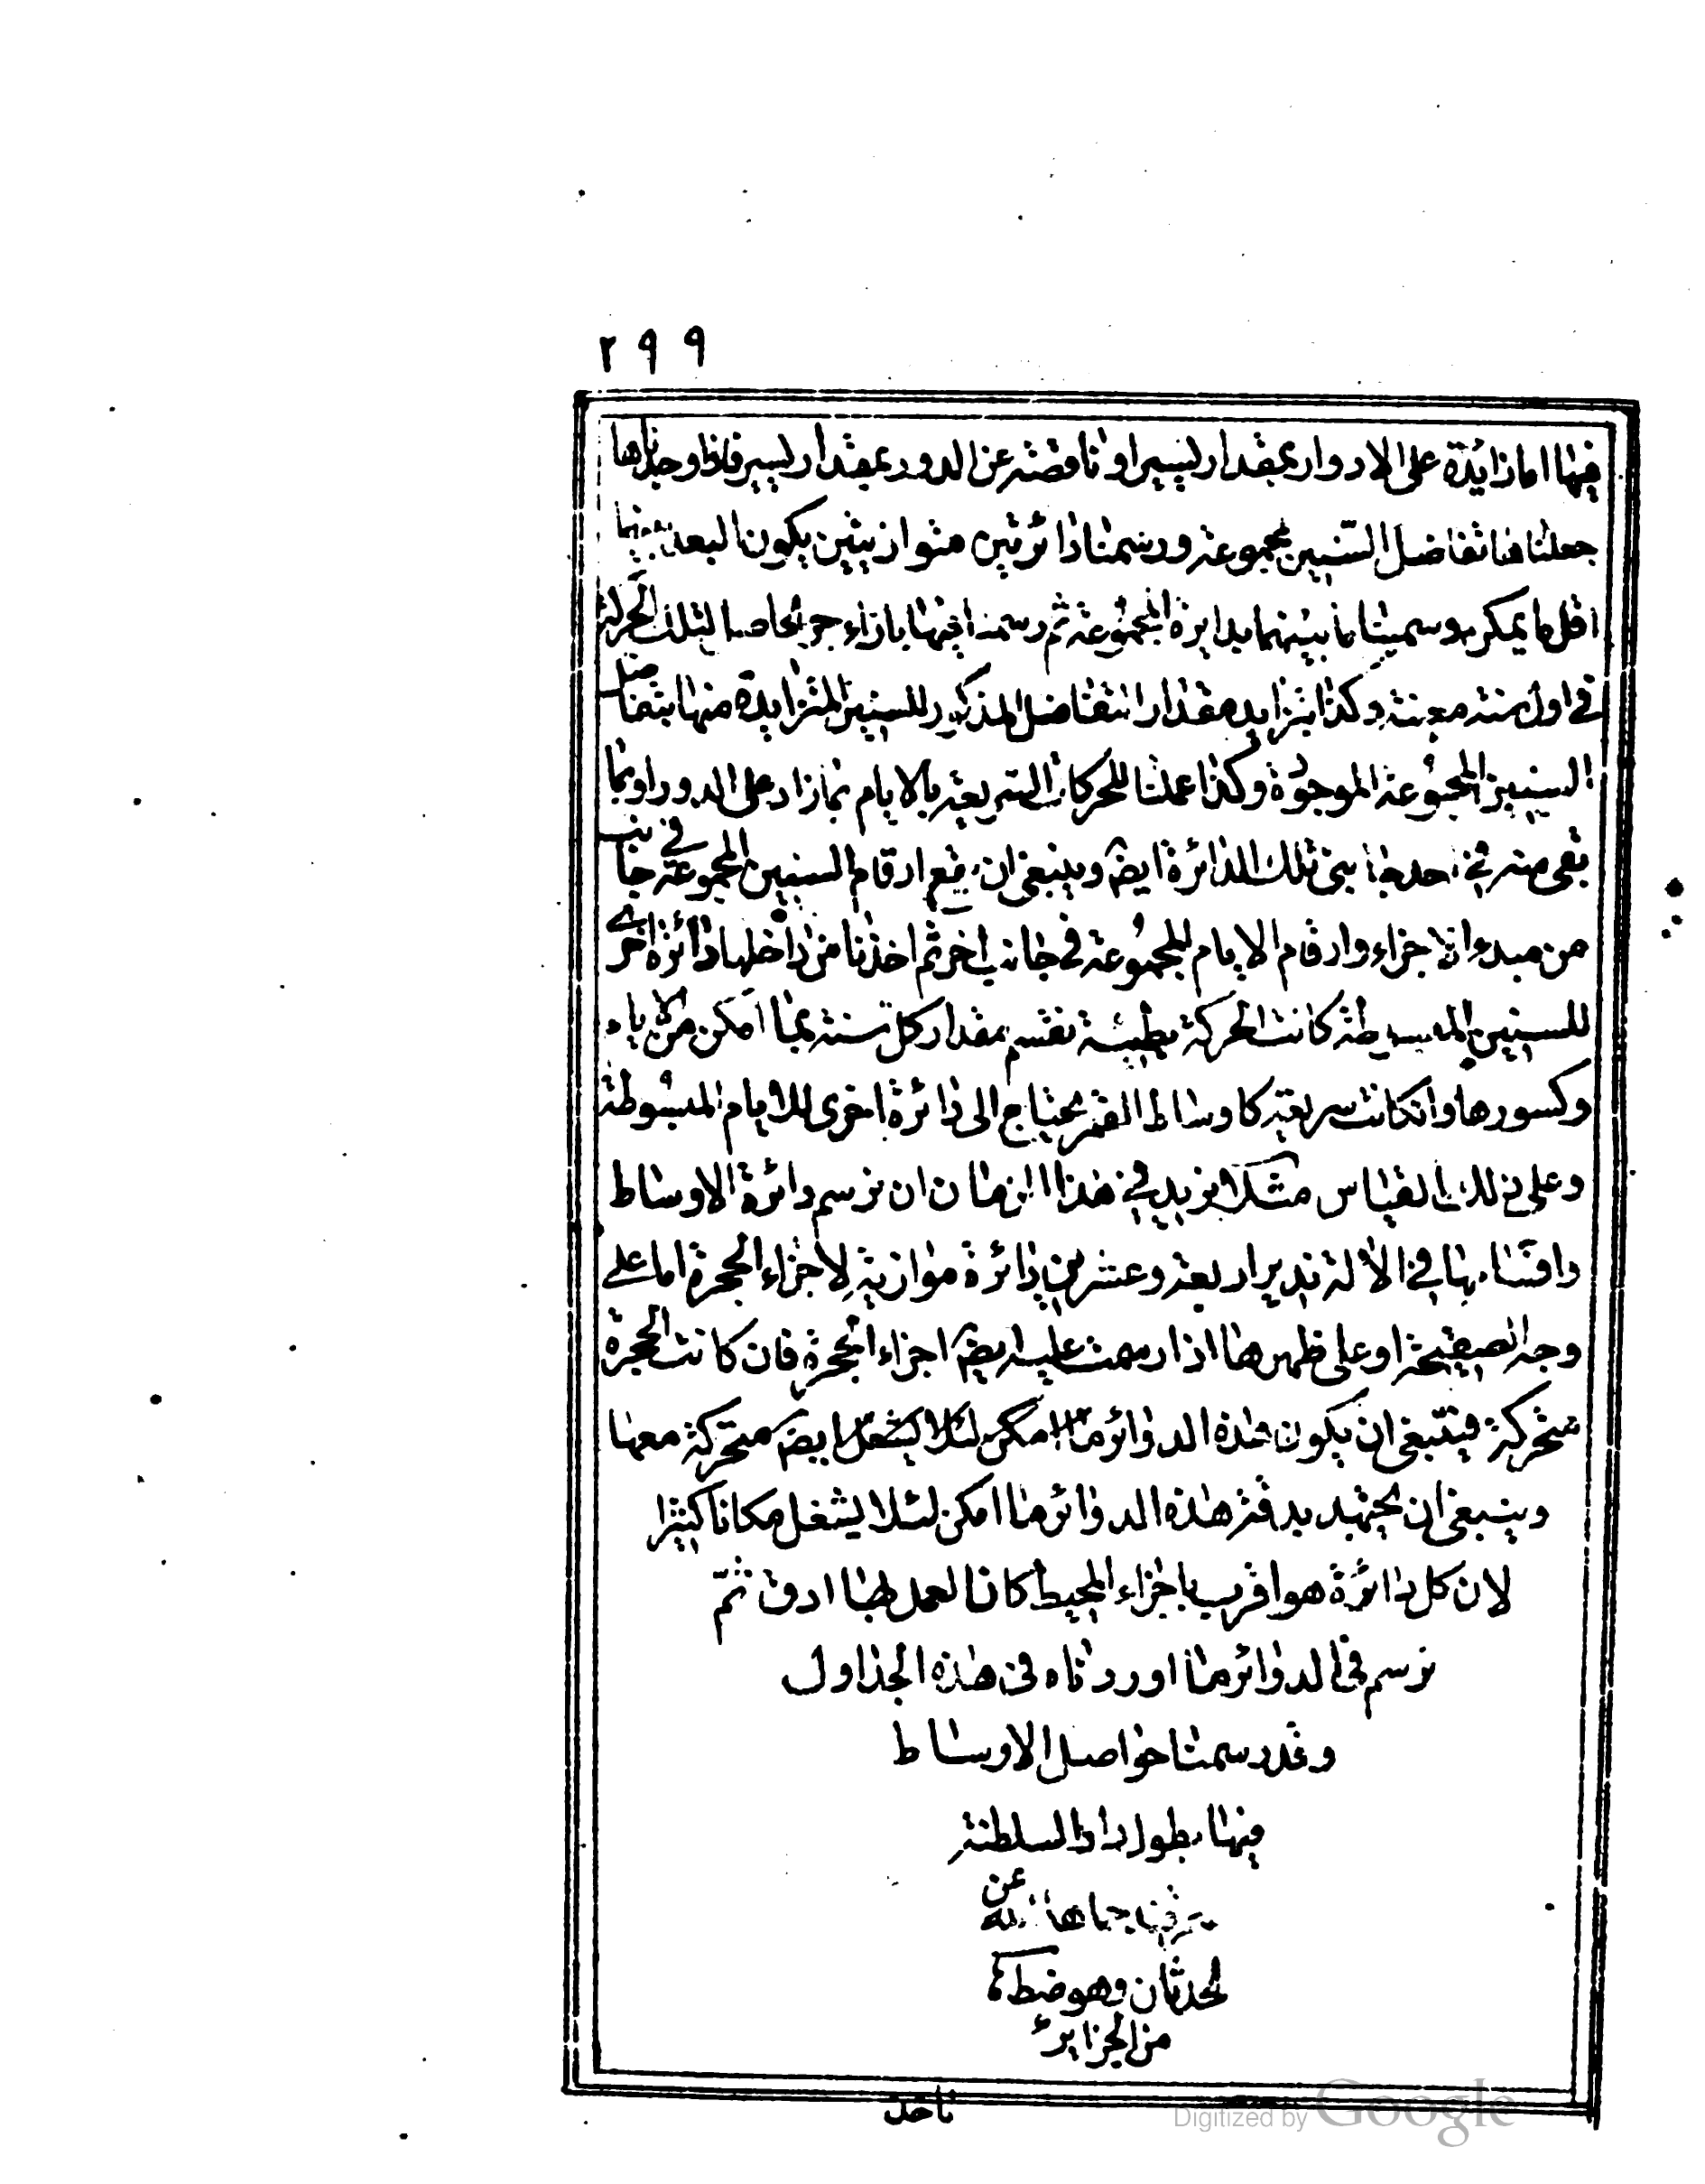 ٢٩٩
فيها اما زايدة على الادوار بمقدار يسير او ناقصة عن الدور بمقدار يسير فاذا وجدناها
جعلناها تفاضل السنين مجموعة ورسمنا دائرتين متوازيتين يكون البعد بينهما
اقل ما يمكن وسمينا ما بينهما بدايرة المجموعة ثم رسمنا فيها بازاء جزء لتلك الحركة
في اول سنة معينة وكذا بتزايد مقدار التفاضل المذكور للسنين المتزايدة منها بتفاضل
السنين المجموعة الموجودة وكذا عملنا للحركات السريعة بالايام بما زاد على الدور او بما
بقى منه في تلك الدائرة ايضا وينبغى ان يقع ارقام السنين المجموعة في جانب
من مبدء الاجزاء وارقام الايام المجموعة في جانب اخر ثم اخذنا من داخلها دائرة اخرى
للسنين المبسوطة كانت الحركة بطيئة نقسم مقدار كل سنة بما امكن من الايام
وكسورها وانكانت سريعة كاوساط القمر يحتاج الى دائرة اخرى للايام المبسوطة
وعلى ذلك القياس مثلا نريد في هذا الزمان ان نرسم دائرة الاوساط
واقسامها في الالة ندير اربعة وعشرين دائرة موازية لاجزاء الحجرة اما على
وجه الصفيحة او على ظهرها اذا رسمت عليه ايضا اجزاء الحجرة فان كانت الحجرة
متحركة فينبغى ان يكون هذه الدوائر ما امكن لئلا يشغل ايضا متحركة معها
وينبغى ان يجتهد بدقة هذه الدوائر ما امكن لئلا يشغل مكانا كثيرا
لان كل دائرة هو اقرب باجزاء المحيط كان العمل بها ادق ثم
نرسم في الدوائر ما اوردناه في هذه الجداول
وقد رسمنا حواصل الاوساط
فيها بطول دار السلطنة
حماها الله عن
الحدثان وهو
من الجزاير
ناحد
Digitized by Google